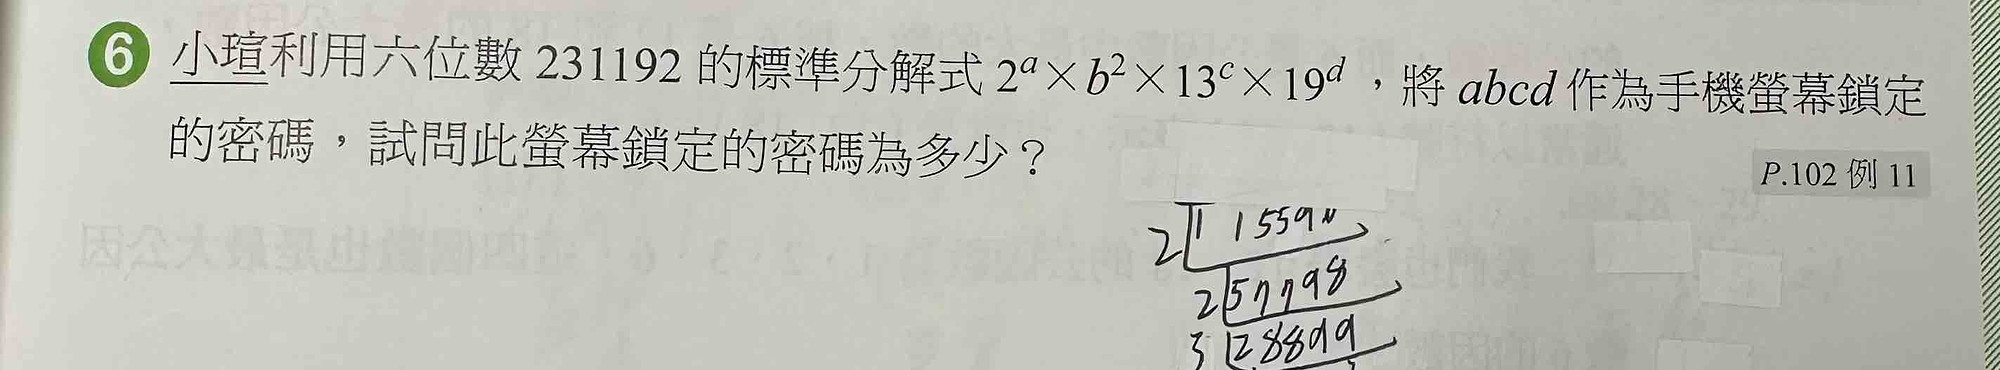 6 小瑄利用六位數 231192 的標準分解式 2^a×b^2×13^c×19^d，將 abcd 作為手機螢幕鎖定
的密碼，試問此螢幕鎖定的密碼為多少？
P.102 例 11
2
2 57798
3 28899